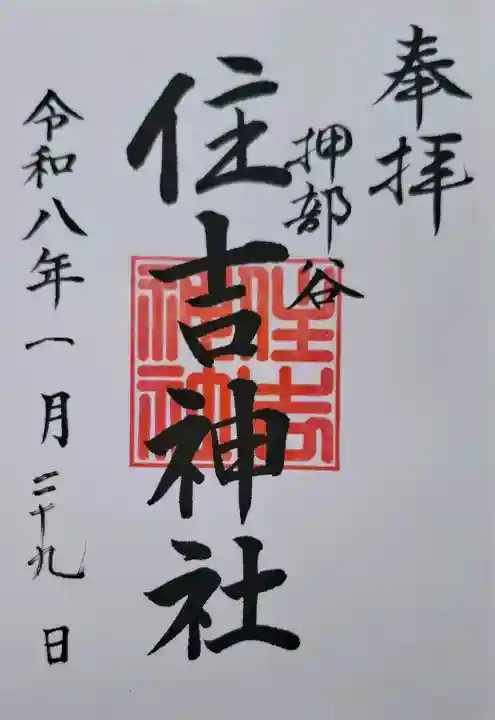 奉拝
押部谷
住吉神社
住吉
神社
令和八年一月二十九日